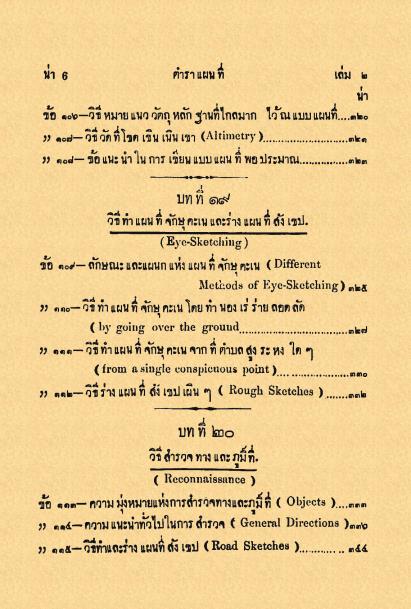 น่า 6 ตำรา แผน ที่ เล่ม ๒
น่า
ข้อ ๑๐๖—วิธี หมาย แนว วัตถุ หลัก ฐานที่ไกลมาก ไว้ ณ แบบ แผนที่....๓๒๐
,, ๑๐๗—วิธี วัด ที่ โขด เขิน เนิน เขา (Altimetry)....................๓๒๑
,, ๑๐๘—ข้อ แนะ นำ ใน การ เขียน แบบ แผน ที่ พอ ประมาณ...............๓๒๓
บท ที่ ๑๙
วิธี ทำ แผน ที่ จักษุ คะเน และร่าง แผน ที่ สัง เขป.
(Eye-Sketching)
ข้อ ๑๐๙—ลักษณะ และแผนก แห่ง แผน ที่ จักษุ คะเน (Different
Methods of Eye-Sketching) ๓๒๕
,, ๑๑๐—วิธี ทำ แผน ที่ จักษุ คะเน โดย ทำ นอง เร่ ร่าย ลอด ลัด
(by going over the ground.........................๓๒๗
,, ๑๑๑—วิธี ทำ แผน ที่ จักษุ คะเน จาก ที่ ตำบล สูง ระ หง ใด ๆ
(from a single conspicuous point).................๓๓๐
,, ๑๑๒—วิธี ร่าง แผน ที่ สัง เขป เผิน ๆ (Rough Sketches).........๓๓๒
บท ที่ ๒๐
วิธี สำรวจ ทาง และ ภูมิ์ ที่.
(Reconnaissance)
ข้อ ๑๑๓—ความ มุ่งหมายแห่งการสำรวจทางและภูมิ์ ที่ (Objects)....๓๓๓
,, ๑๑๔—ความ แนะนำทั่วไปในการ สำรวจ (General Directions) ๓๓๖
,, ๑๑๕—วิธีทำและร่าง แผนที่ สัง เขป (Road Sketches)........... ๓๔๔